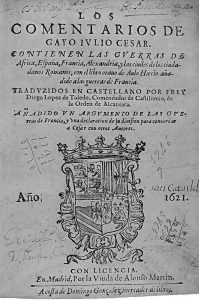 LOS
COMENTARIOS DE
GAYO IVLIO CESAR.
CONTIENEN LAS GVERRAS DE
Africa, España, Francia, Alexandria, y las ciuiles de los ciuda-
danos Romanos, con el libro otauo de Aulo Hircio aña-
dido a las guerras de Francia.
TRADVZIDOS EN CASTELLANO POR FREY
Diego Lopez de Toledo, Comendador de Castilnouo, de
la Orden de Alcantara.
AÑADIDO VN ARGVMENTO DE LAS GVE-
rras de Francia, y vna declaracion de su diuision para concertar
a Cesar con otros Autores.
Año. 1621.
CON LICENCIA.
En Madrid, Por la Viuda de Alonso Martin.
A costa de Domingo Gonçalez mercader de libros.